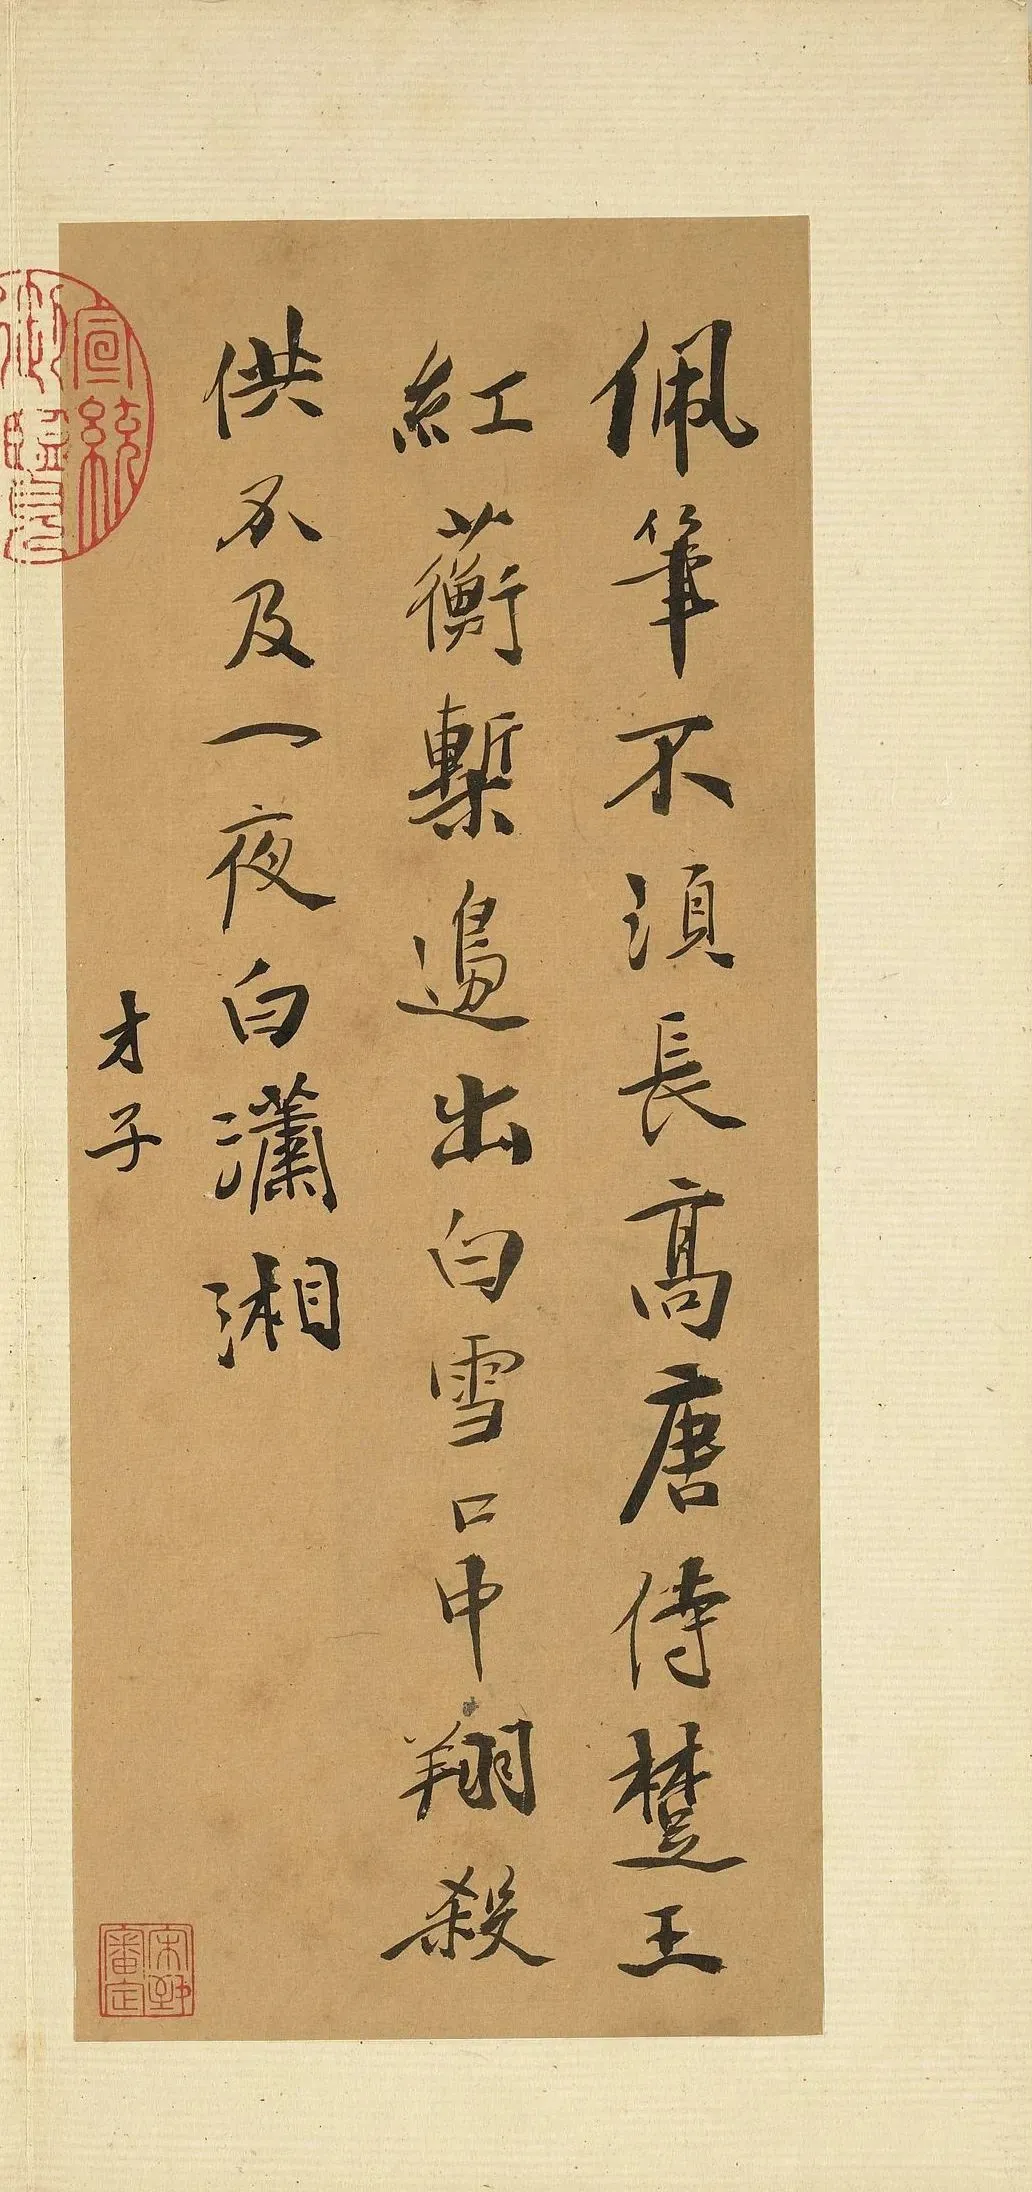 佩筆不須長高唐侍楚王
紅蘅槧邊出白雪口中翔殺
供不及一夜白瀟湘
才子
宣統御覽
宋犖審定